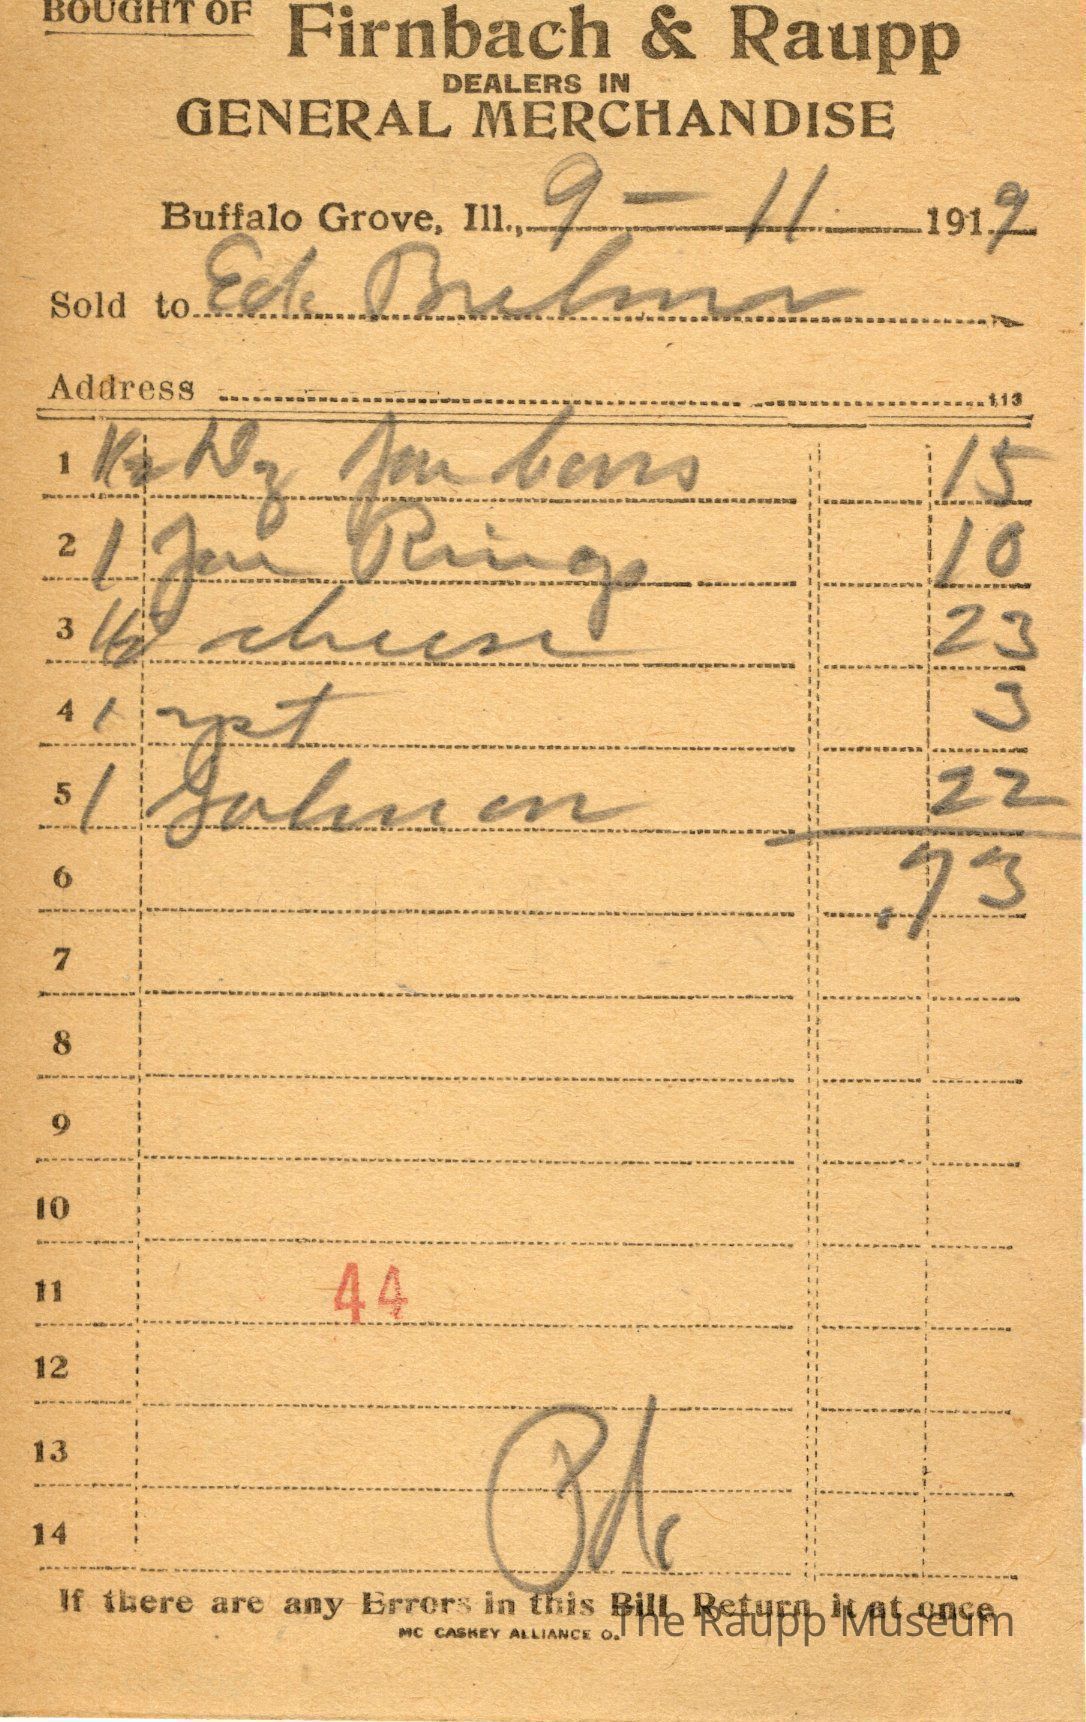 BOUGHT OF Firnbach & Raupp
DEALERS IN
GENERAL MERCHANDISE
Buffalo Grove, Ill., 9 - 11 1919
Sold to Ed
Address 113
1 1/2 Dz Jar 15
2 1 Jar Rings 10
3 1/2 cheese 23
4 1 yst 3
5 1 22
6 .73
7
8
9
10
11 44
12
13
14 Pd
If there are any Errors in this Bill Return it at once
MC CASKEY ALLIANCE O.
The Raupp Museum